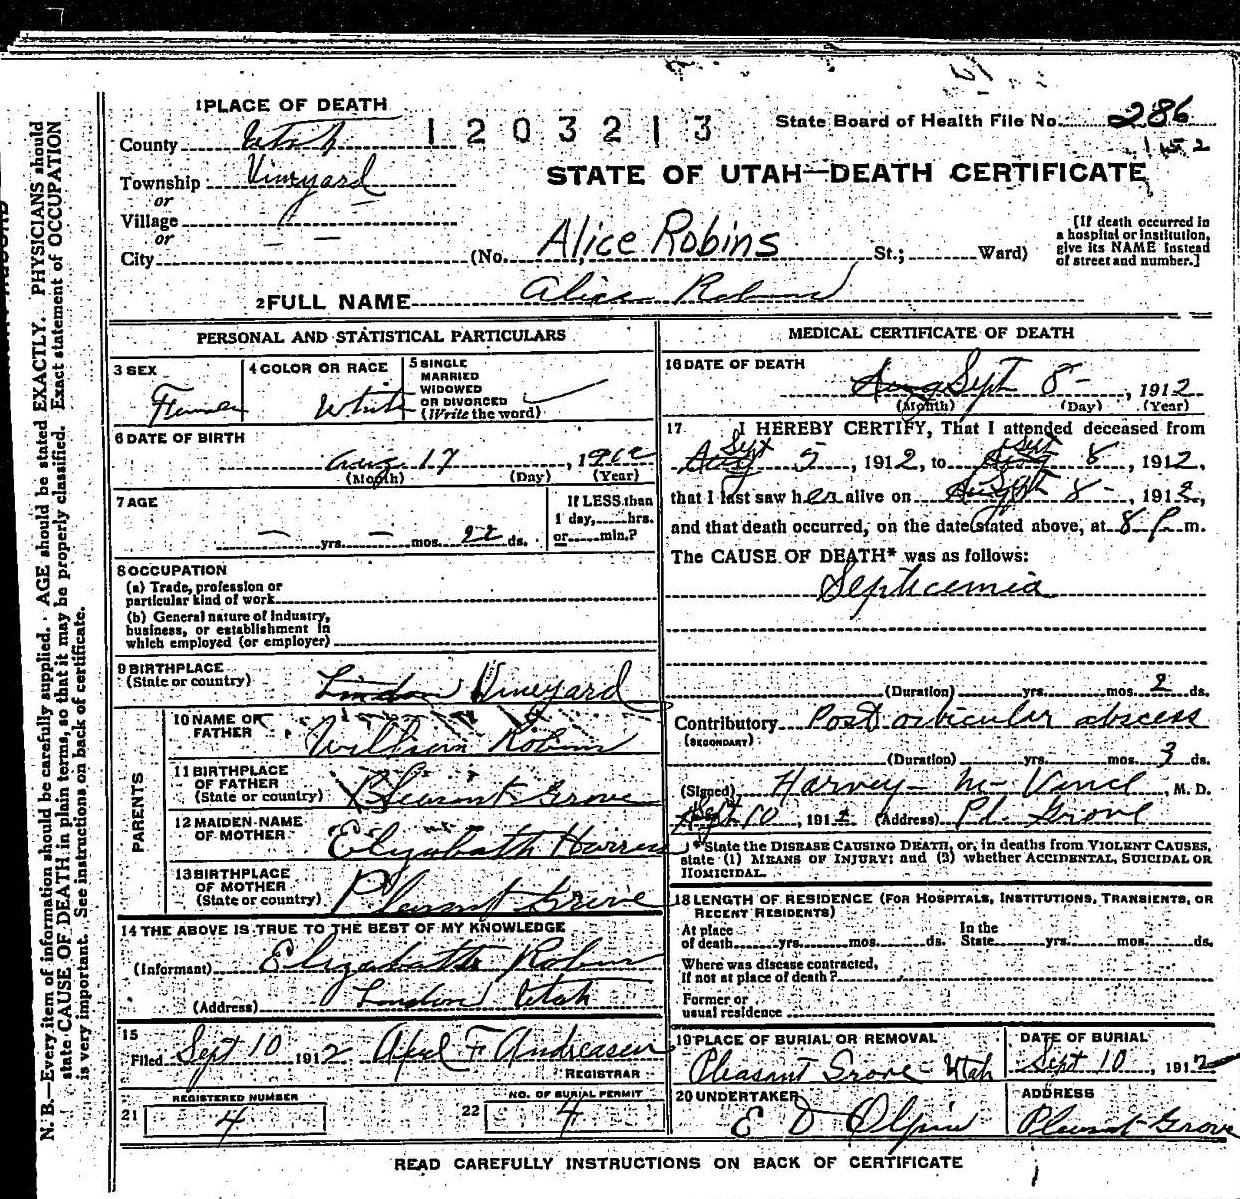 1 PLACE OF DEATH
County Utah
1203213
State Board of Health File No. 286
152
Township Vineyard
or
Village
or
City
STATE OF UTAH—DEATH CERTIFICATE
(No. Alice Robins St.; Ward)
[If death occurred in a hospital or institution, give its NAME instead of street and number.]
2 FULL NAME Alice Robins
PERSONAL AND STATISTICAL PARTICULARS
3 SEX
Female
4 COLOR OR RACE
White
5 SINGLE
MARRIED
WIDOWED
OR DIVORCED
(Write the word)
6 DATE OF BIRTH
Aug. 17, 191
(Month) (Day) (Year)
7 AGE
— yrs. — mos. 22 ds.
If LESS than
1 day, hrs.
or min.?
8 OCCUPATION
(a) Trade, profession or
particular kind of work
(b) General nature of industry,
business, or establishment in
which employed (or employer)
9 BIRTHPLACE
(State or country)
Lindon Vineyard
PARENTS
10 NAME OF
FATHER
William Robins
11 BIRTHPLACE
OF FATHER
(State or country)
Pleasant Grove
12 MAIDEN NAME
OF MOTHER
Elizabeth
13 BIRTHPLACE
OF MOTHER
(State or country)
Pleasant Grove
14 THE ABOVE IS TRUE TO THE BEST OF MY KNOWLEDGE
(Informant) Elizabeth Robins
(Address) Lindon Utah
15
Filed Sept 10 1912 F Andreasen
REGISTRAR
REGISTERED NUMBER
21 4
NO. OF BURIAL PERMIT
22 4
MEDICAL CERTIFICATE OF DEATH
16 DATE OF DEATH
Aug Sept 8 — , 1912
(Month) (Day) (Year)
17 I HEREBY CERTIFY, That I attended deceased from
Aug Sept 5, 1912, to Aug Sept 8, 1912,
that I last saw her alive on Aug Sept 8 —, 1912,
and that death occurred, on the date stated above, at 8 P m.
The CAUSE OF DEATH* was as follows:
Septicemia
(Duration) yrs. mos. 2 ds.
Contributory Post abscess
(SECONDARY)
(Duration) yrs. mos. 3 ds.
(Signed) Harvey M. , M. D.
Sept 10, 1912 (Address) Pl. Grove
*State the DISEASE CAUSING DEATH, or, in deaths from VIOLENT CAUSES,
state (1) MEANS OF INJURY; and (2) whether ACCIDENTAL, SUICIDAL OR
HOMICIDAL.
18 LENGTH OF RESIDENCE (FOR HOSPITALS, INSTITUTIONS, TRANSIENTS, OR
RECENT RESIDENTS)
At place
of death yrs. mos. ds.
In the
State yrs. mos. ds.
Where was disease contracted,
if not at place of death?
Former or
usual residence
19 PLACE OF BURIAL OR REMOVAL
Pleasant Grove — Utah
DATE OF BURIAL
Sept 10, 1912
20 UNDERTAKER
E D Olpin
ADDRESS
Pleasant Grove
READ CAREFULLY INSTRUCTIONS ON BACK OF CERTIFICATE
N. B.—Every item of information should be carefully supplied. AGE should be stated EXACTLY. PHYSICIANS should
state CAUSE OF DEATH in plain terms, so that it may be properly classified. Exact statement of OCCUPATION
is very important. See instructions on back of certificate.